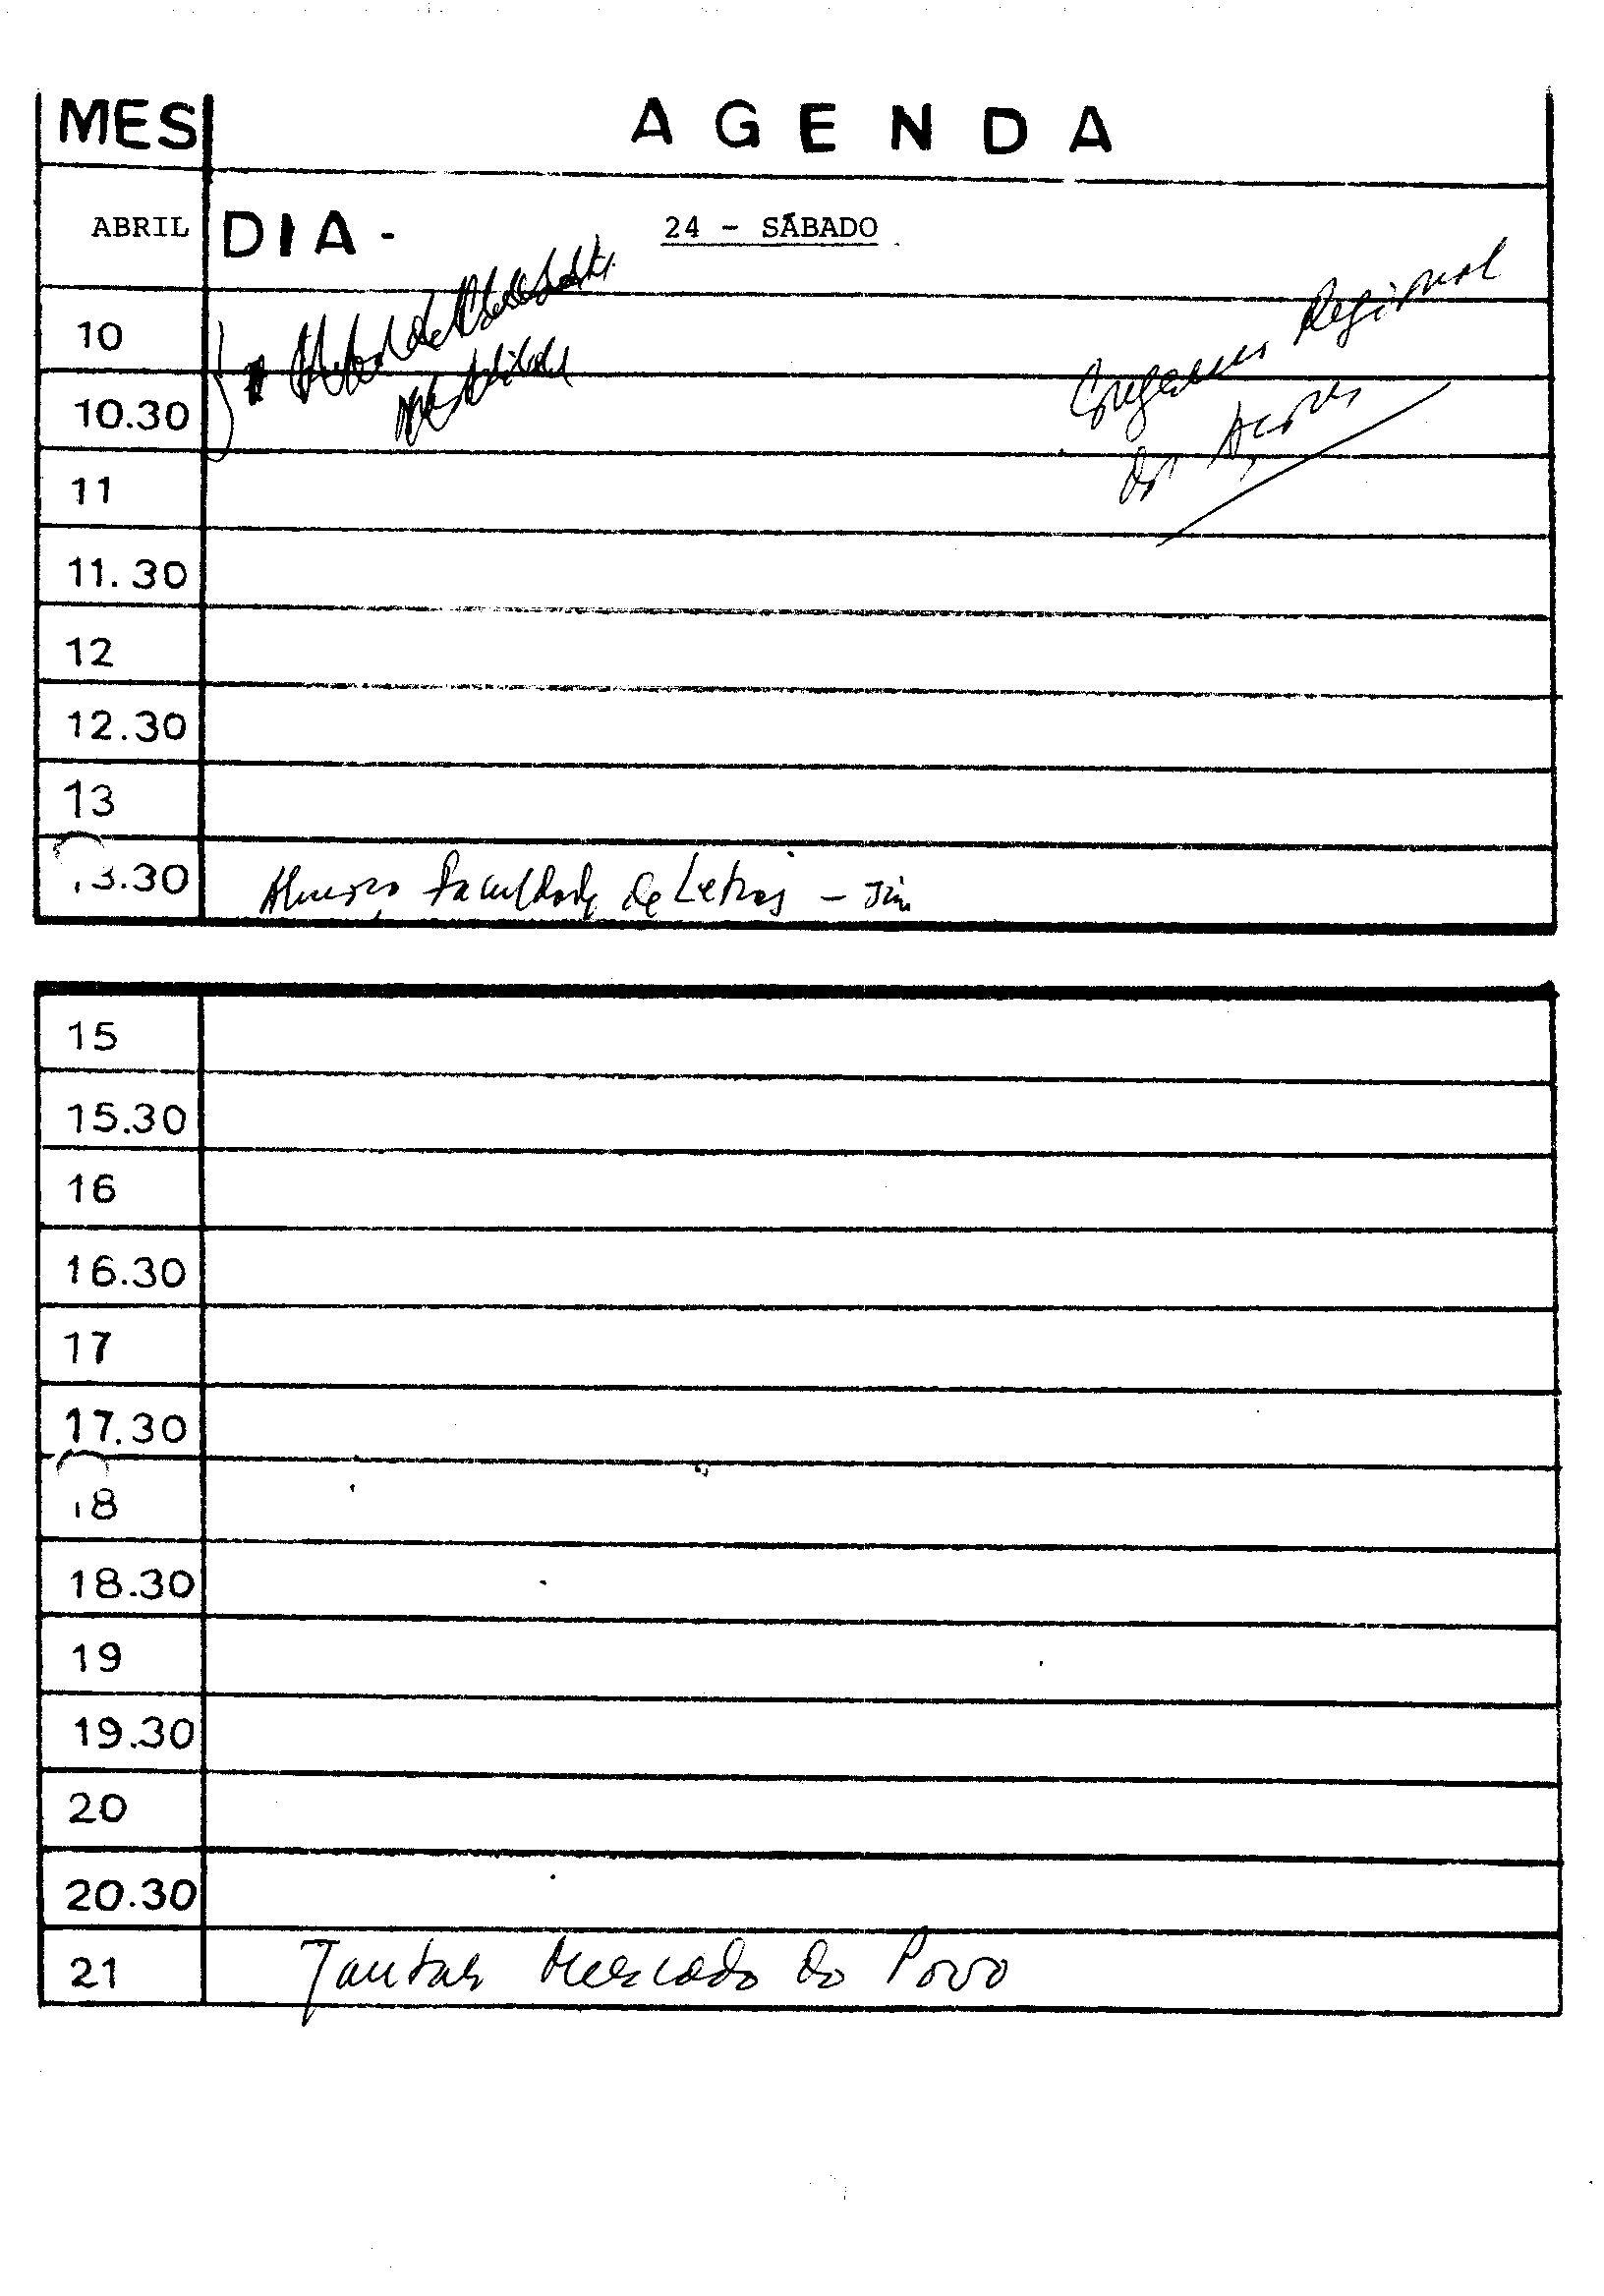 MES AGENDA
ABRIL DIA - 24 - SÁBADO
10
Regional
10.30
dos Açores
11
11.30
12
12.30
13
13.30 Almoço Faculdade de Letras - Sim
15
15.30
16
16.30
17
17.30
18
18.30
19
19.30
20
20.30
21 Jantar Mercado do Povo